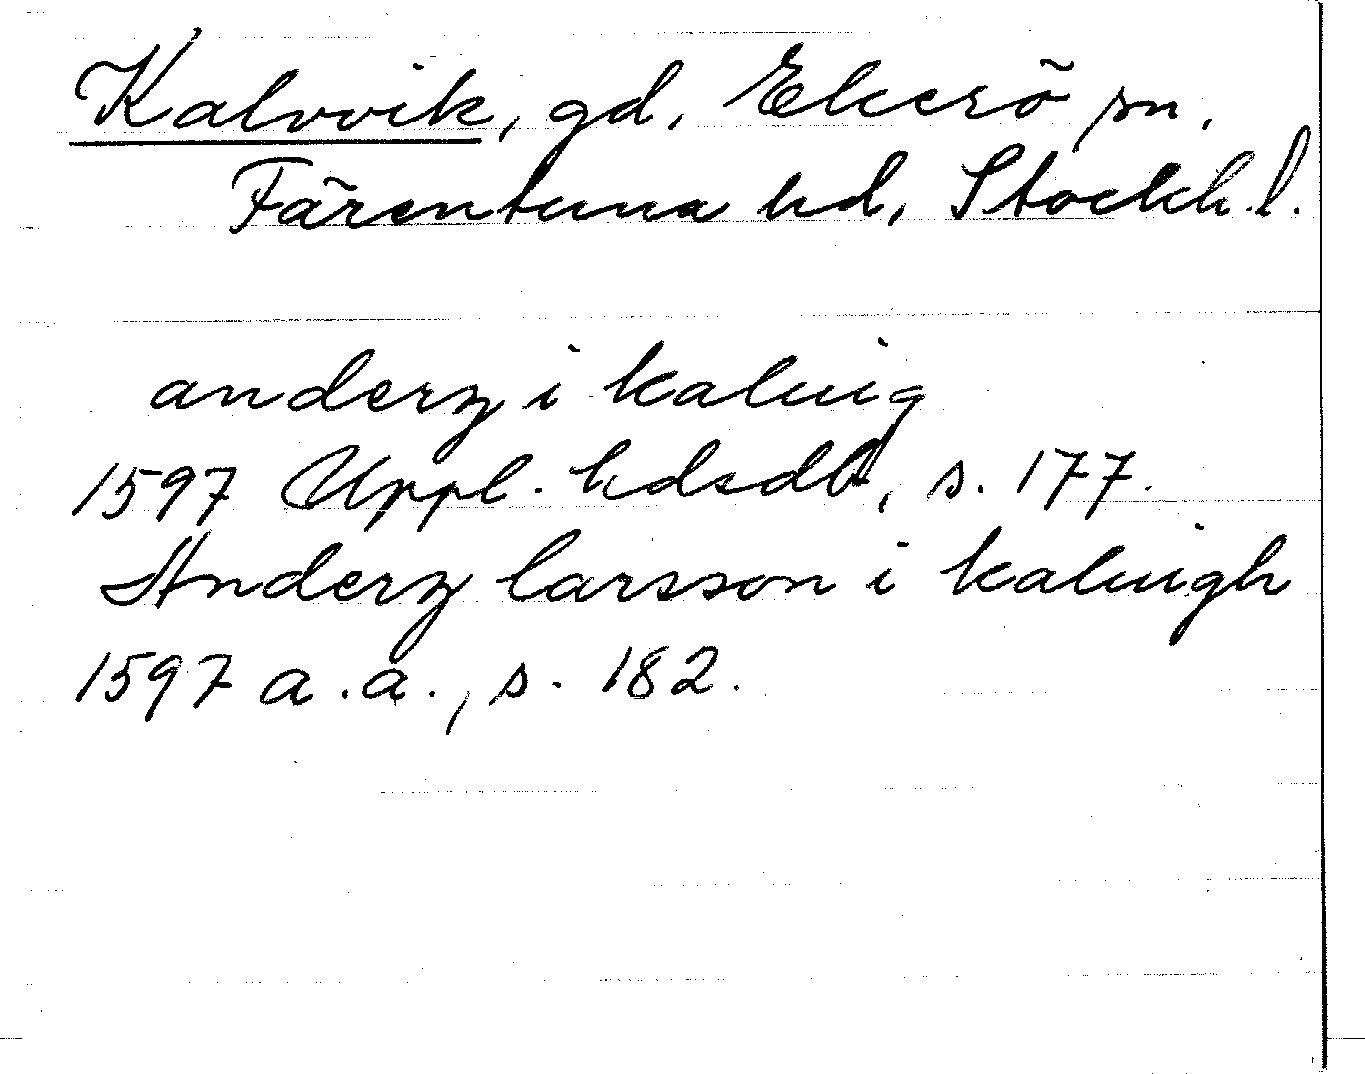 Kalvvik, gd, Ekerö sn,
Färentuna hd, Stockh.l.
anderz i kaluig
1597 Uppl. hdsdb, s. 177.
Anderz larsson i kaluigh
1597 a.a., s. 182.